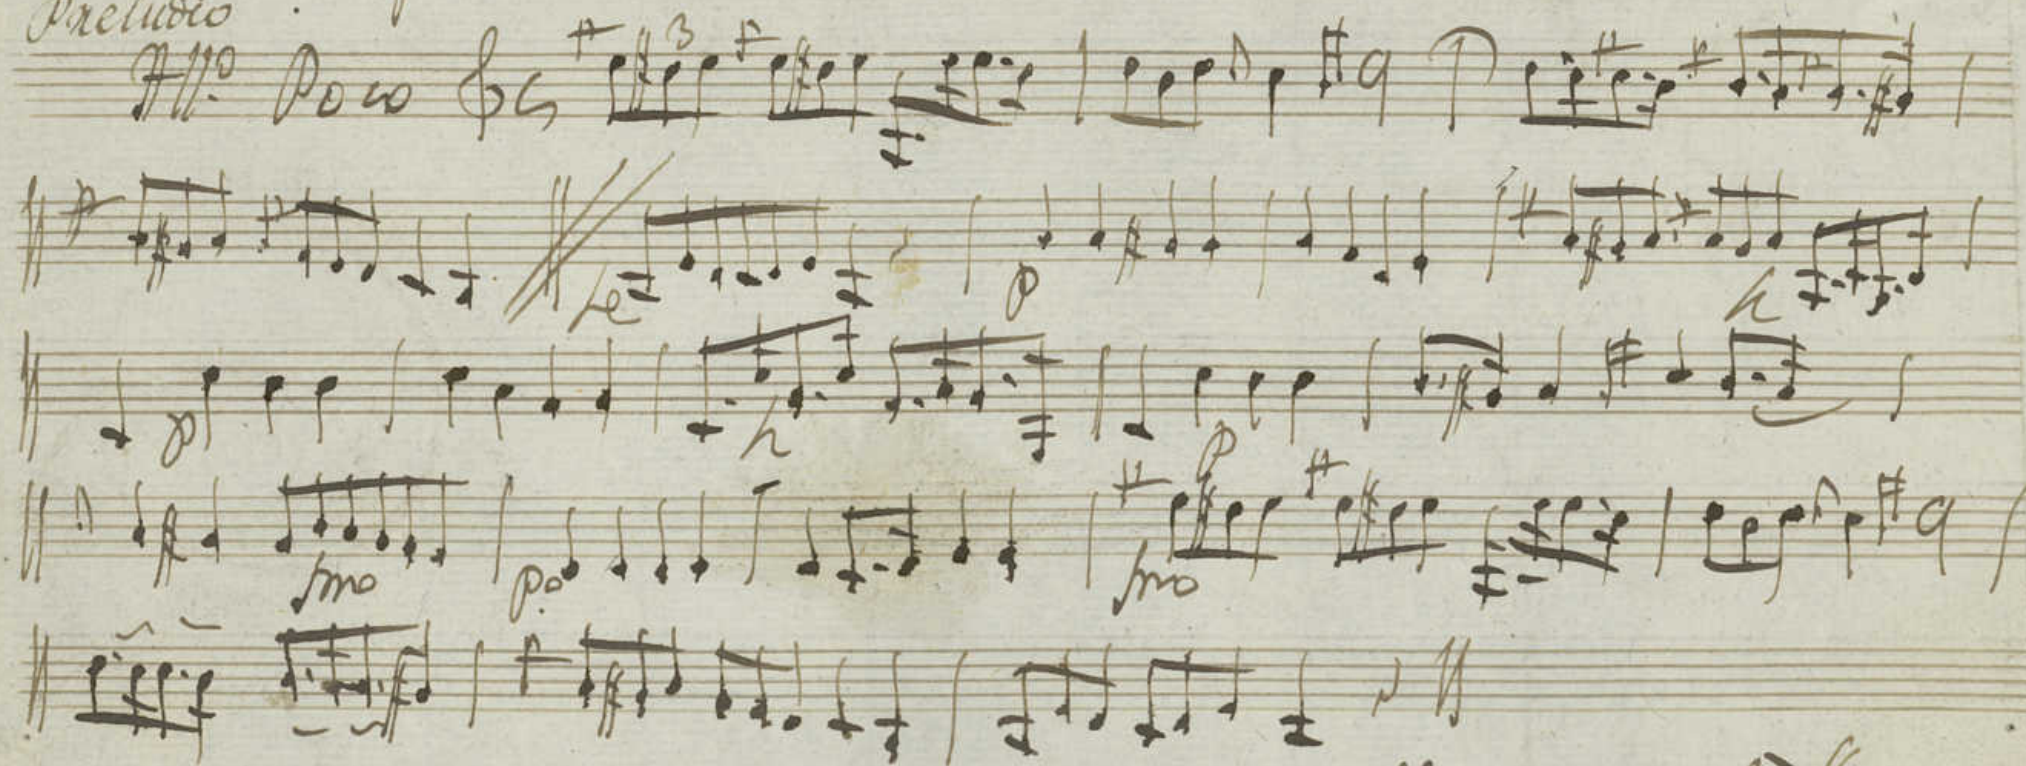 Preludio
All.º Poco
3
p
p h
p h
p
fmo po fmo